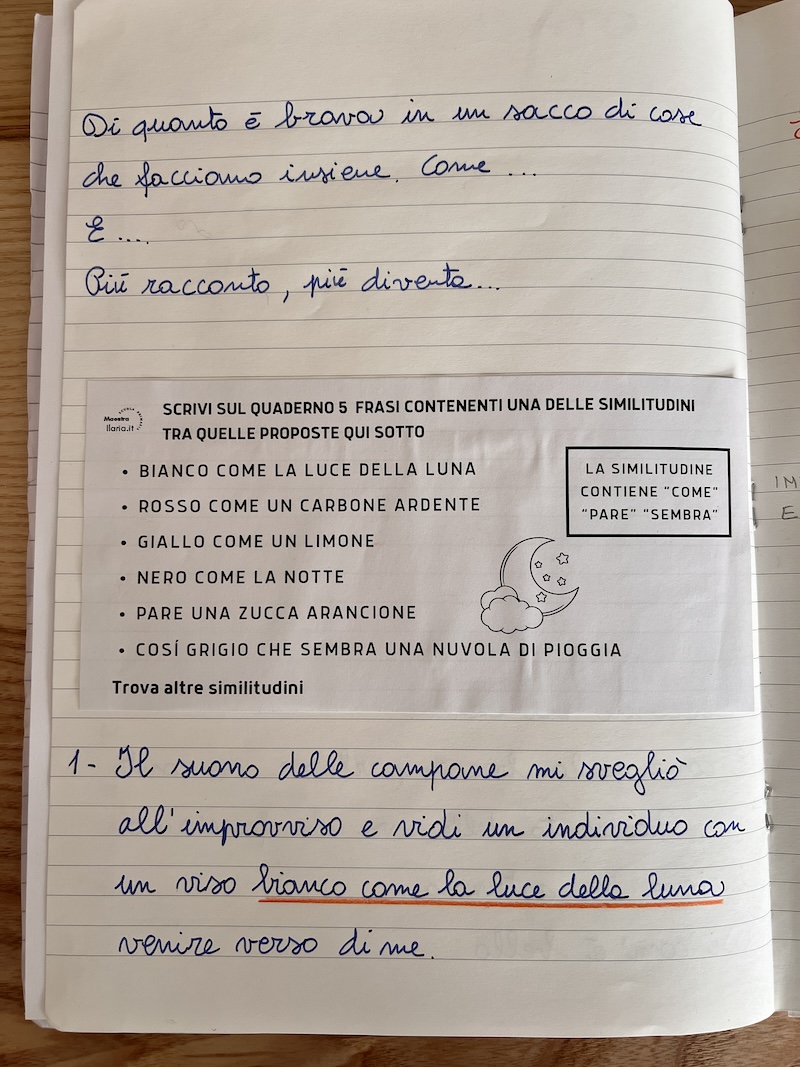 Di quanto è brava in un sacco di cose
che facciamo insieme. Come ...
E ....
Più racconto, più diventa...
SCUOLA PRIMARIA
Maestra
Ilaria.it
SCRIVI SUL QUADERNO 5 FRASI CONTENENTI UNA DELLE SIMILITUDINI
TRA QUELLE PROPOSTE QUI SOTTO
• BIANCO COME LA LUCE DELLA LUNA
• ROSSO COME UN CARBONE ARDENTE
• GIALLO COME UN LIMONE
• NERO COME LA NOTTE
• PARE UNA ZUCCA ARANCIONE
• COSÍ GRIGIO CHE SEMBRA UNA NUVOLA DI PIOGGIA
LA SIMILITUDINE
CONTIENE "COME"
"PARE" "SEMBRA"
Trova altre similitudini
1- Il suono delle campane mi svegliò
all'improvviso e vidi un individuo con
un viso bianco come la luce della luna
venire verso di me.
IM
E